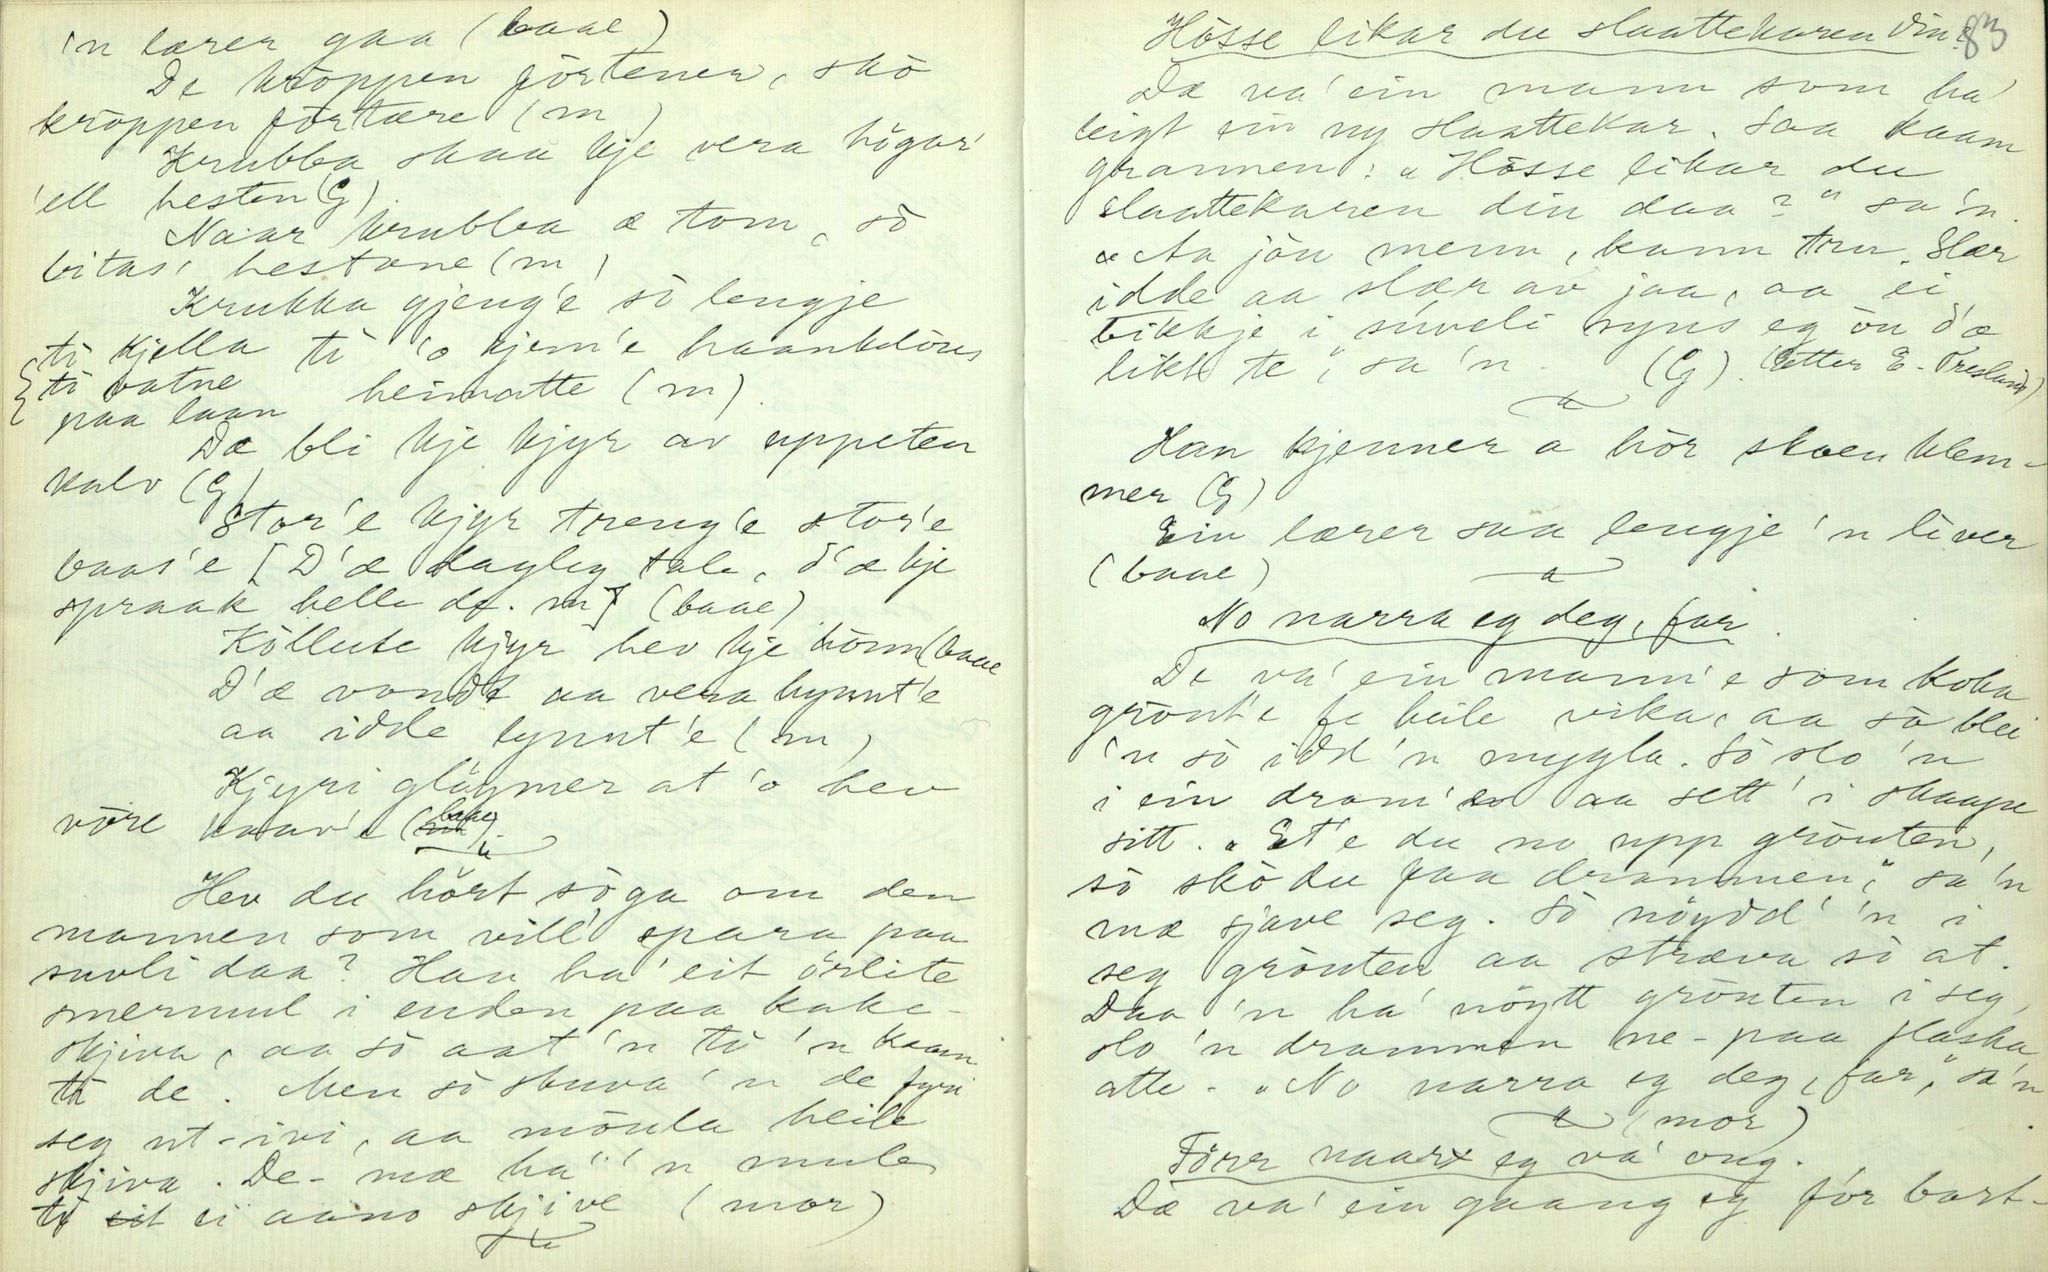 'n lærer gaa (baae)
De kröppen förtener, skò
kröppen förtære (m)
Krubba skaa kje vera högar'
'ell hesten (G).
Naar krubba æ tom, sò
bitas' hestane (m)
Krukka gjeng'e sò lengje
tì kjella tì 'o kjem'e haanklöus
{ tì vatne heimatte (m).
paa laan
Dæ bli kje kjyr av uppeten
kalv (G)
Stor'e kjyr treng'e stor'e
baas'e [D'æ dagleg tale, d'æ kje
spraak helle de. m] (baae)
Kòllute kjyr hev kje hònn (baae
D'æ vondt aa vera hynnt'e
aa idde lynnt'e (m)
Kjyri glöymer at 'o hev
vòre kaav'e (baae).
Hev du hört sòga om den
mannen som vill' spara paa
suvli daa? Han ha' eit örlite
smermul i enden paa kake-
skjiva, aa sò aat 'n tì 'n kaam
tì de. Men sò skuva 'n de fyri
seg ut-ivi, aa mònla heile
skjiva. De-mæ ha' 'n mule
tì ei aano skjive (mor)
83
Hòsse likar du slaattekaren din?
Dæ va' ein mann som ha'
leigt ein ny slaattekar. Saa kaam
grannen: "Hòsse likar du
slaattekaren din daa?" sa 'n.
"Aa jòu menn, kann tru. Slær
idde aa slær av jaa, aa ei
bikkje i suveli syns eg òu d'æ
likt te", sa 'n. (G). (Etter E. Tresland)
Han kjenner a hòr skoen klem-
mer (G)
Ein lærer saa lengje 'n liver
(baae)
No narra eg deg, far.
De va' ein mann'e som koka
gròut'e fe heile vika, aa sò blei
'n sò idd 'n mygla. Sò slo 'n
i ein dram'e aa sett' i skaape
sitt. "Et'e du no upp gròuten,
sò skò du faa drammen", sa 'n
mæ sjave seg. Sò nöydd' 'n i
seg gròuten aa stræva sò at.
Daa 'n ha' nöytt gròuten i seg,
slo 'n drammen ne-paa flaska
atte. "No narra eg deg, far," sa 'n
(mor)
Fòrr naar eg va' ong.
Dæ va' ein gaang eg fór bort-